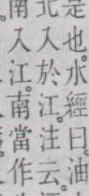 是也水經曰油
北入於江注云
南入江南當作